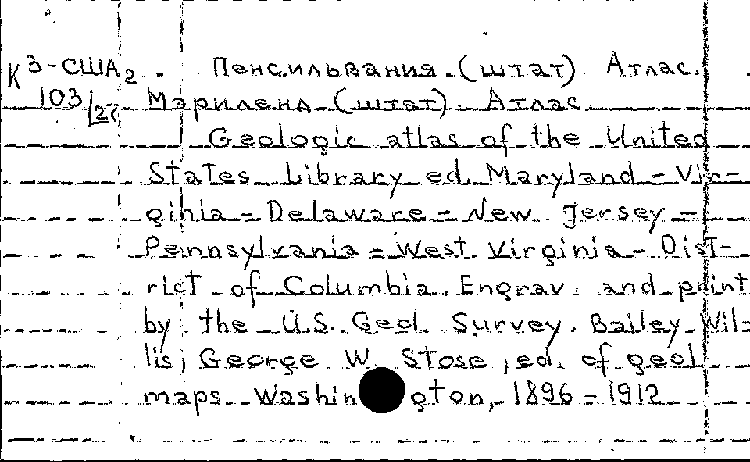 К З-США2. Пенсильвания. (штат) Атлас.
103/27 Мэриленд (штат) Атлас
Geologic atlas of the United
States. Library ed. Maryland - Vir-
ginia - Delaware - New Jersey -
Pennsylvania - West Virginia - Dist-
rict of Columbia. Engrav. and print
by the U.S. Geol. Survey. Bailey Wil-
lis; George W. Stose, ed. of geol
maps. Washington, 1896 - 1912